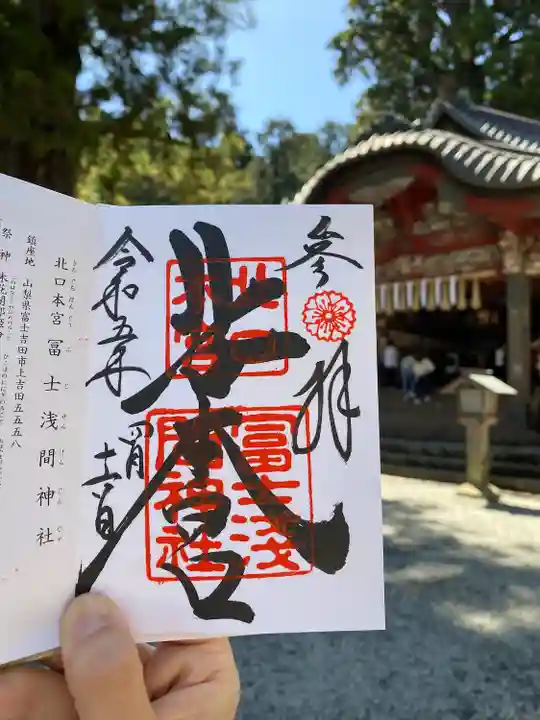 参拝
北口本宮
北口本宮
冨士浅
間神社
令和五年
四月
十一日
北口本宮 冨士浅間神社
鎮座地 山梨県富士吉田市上吉田五五五八
祭神 木花開耶姫命